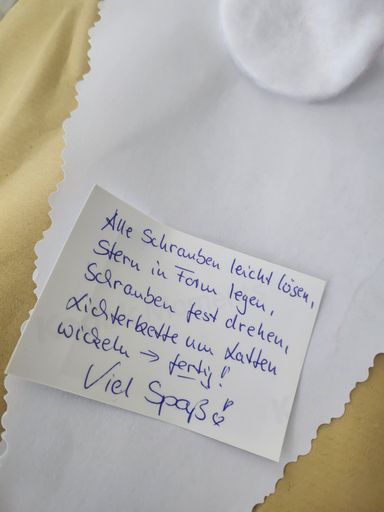 Alle Schrauben leicht lösen,
Stern in Form legen,
Schrauben fest drehen,
Lichterkette um Latten
wickeln → fertig!
Viel Spaß! ♡